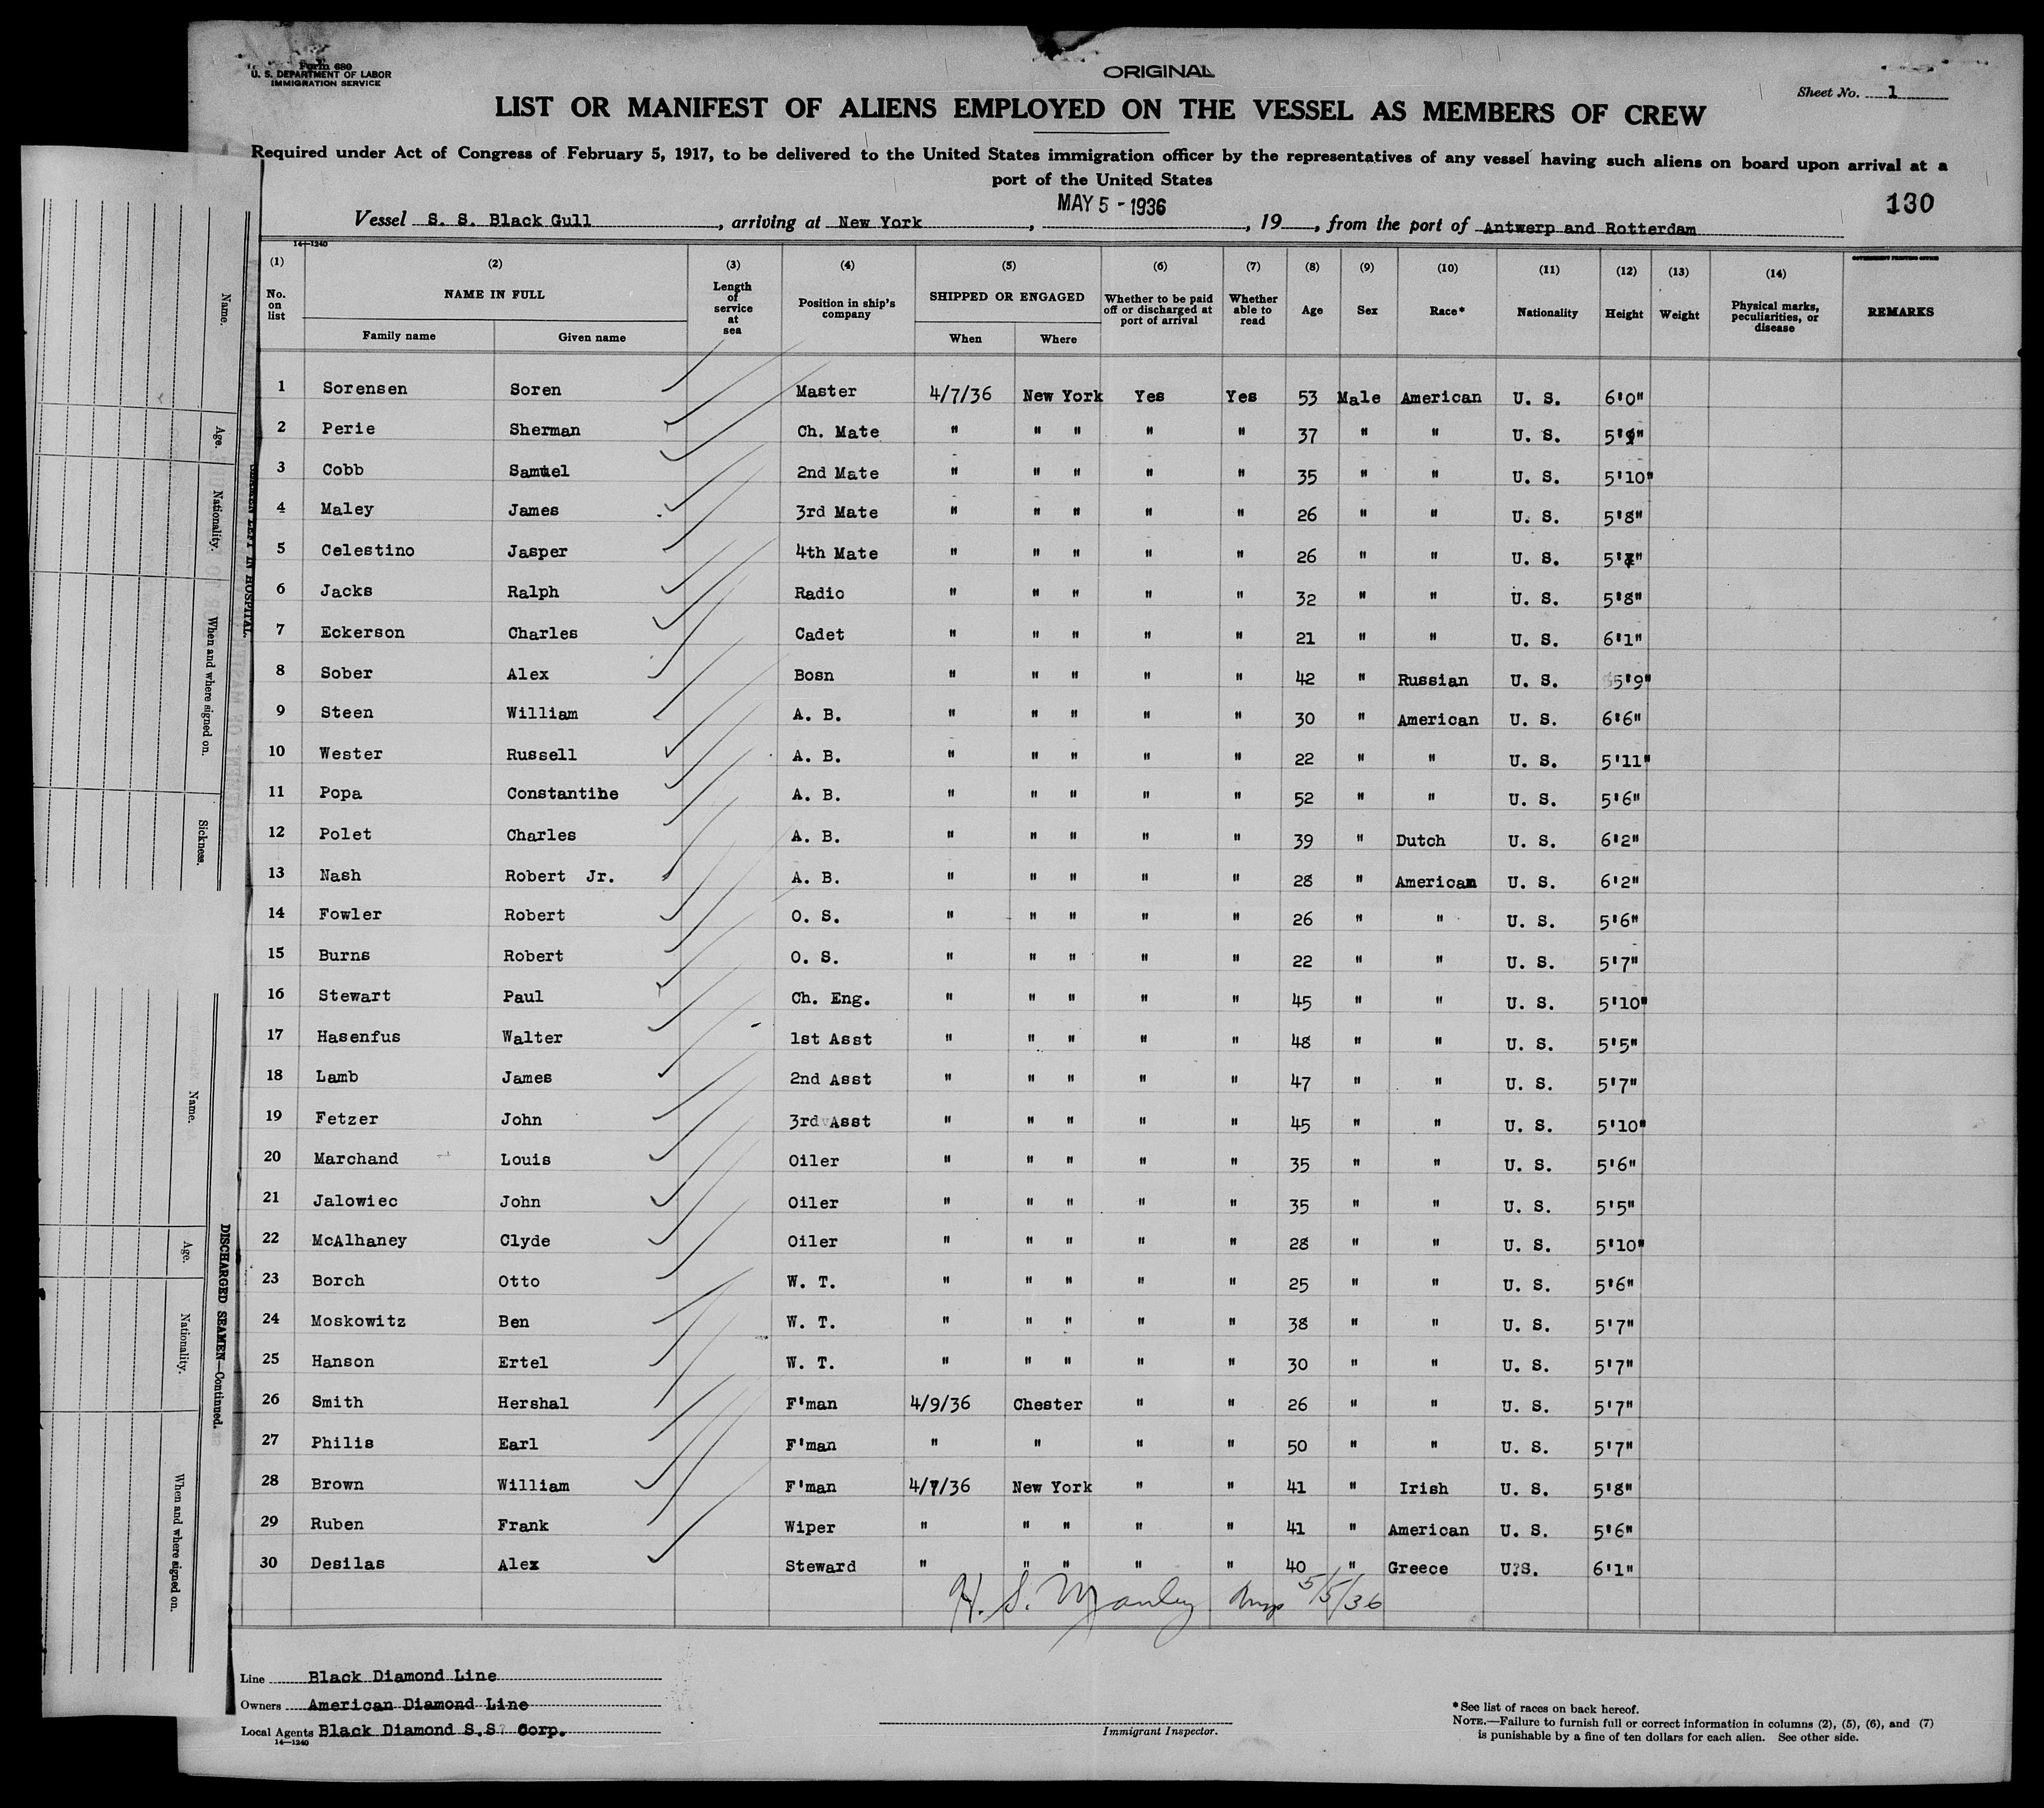 Form 680
U. S. DEPARTMENT OF LABOR
IMMIGRATION SERVICE
ORIGINAL
Sheet No. 1
LIST OR MANIFEST OF ALIENS EMPLOYED ON THE VESSEL AS MEMBERS OF CREW
Required under Act of Congress of February 5, 1917, to be delivered to the United States immigration officer by the representatives of any vessel having such aliens on board upon arrival at a
port of the United States
130
Vessel S. S. Black Gull, arriving at New York, MAY 5 - 1936, 19, from the port of Antwerp and Rotterdam
14—1240
GOVERNMENT PRINTING OFFICE
(1) (2) (3) (4) (5) (6) (7) (8) (9) (10) (11) (12) (13) (14)
No. on list NAME IN FULL Length of service at sea Position in ship's company SHIPPED OR ENGAGED Whether to be paid off or discharged at port of arrival Whether able to read Age Sex Race* Nationality Height Weight Physical marks, peculiarities, or disease REMARKS
Family name Given name When Where
1 Sorensen Soren Master 4/7/36 New York Yes Yes 53 Male American U. S. 6'0"
2 Perie Sherman Ch. Mate " " " " " 37 " " U. S. 5'9"
3 Cobb Samuel 2nd Mate " " " " " 35 " " U. S. 5'10"
4 Maley James 3rd Mate " " " " " 26 " " U. S. 5'8"
5 Celestino Jasper 4th Mate " " " " " 26 " " U. S.
6 Jacks Ralph Radio " " " " " 32 " " U. S. 5'8"
7 Eckerson Charles Cadet " " " " " 21 " " U. S. 6'1"
8 Sober Alex Bosn " " " " " 42 " Russian U. S. 5'9"
9 Steen William A. B. " " " " " 30 " American U. S. 6'6"
10 Wester Russell A. B. " " " " " 22 " " U. S. 5'11"
11 Popa Constantine A. B. " " " " " 52 " " U. S. 5'6"
12 Polet Charles A. B. " " " " " 39 " Dutch U. S. 6'2"
13 Nash Robert Jr. A. B. " " " " " 28 " American U. S. 6'2"
14 Fowler Robert O. S. " " " " " 26 " " U. S. 5'6"
15 Burns Robert O. S. " " " " " 22 " " U. S. 5'7"
16 Stewart Paul Ch. Eng. " " " " " 45 " " U. S. 5'10"
17 Hasenfus Walter 1st Asst " " " " " 48 " " U. S. 5'5"
18 Lamb James 2nd Asst " " " " " 47 " " U. S. 5'7"
19 Fetzer John 3rd Asst " " " " " 45 " " U. S. 5'10"
20 Marchand Louis Oiler " " " " " 35 " " U. S. 5'6"
21 Jalowiec John Oiler " " " " " 35 " " U. S. 5'5"
22 McAlhaney Clyde Oiler " " " " " 28 " " U. S. 5'10"
23 Borch Otto W. T. " " " " " 25 " " U. S. 5'6"
24 Moskowitz Ben W. T. " " " " " 38 " " U. S. 5'7"
25 Hanson Ertel W. T. " " " " " 30 " " U. S. 5'7"
26 Smith Hershal F'man 4/9/36 Chester " " 26 " " U. S. 5'7"
27 Philis Earl F'man " " " " 50 " " U. S. 5'7"
28 Brown William F'man 4/7/36 New York " " 41 " Irish U. S. 5'8"
29 Ruben Frank Wiper " " " " " 41 " American U. S. 5'6"
30 Desilas Alex Steward " " " " " 40 " Greece U.S. 6'1"
H. S. Manley Insp 5/5/36
Line Black Diamond Line
Owners American Diamond Line
Local Agents Black Diamond S.S. Corp.
14—1240
Immigrant Inspector.
*See list of races on back hereof.
NOTE.—Failure to furnish full or correct information in columns (2), (5), (6), and (7)
is punishable by a fine of ten dollars for each alien. See other side.
Name.
Age.
Nationality.
When and where signed on.
Sickness.
LEFT IN HOSPITAL
Name.
Age.
Nationality.
When and where signed on.
DISCHARGED SEAMEN—Continued.